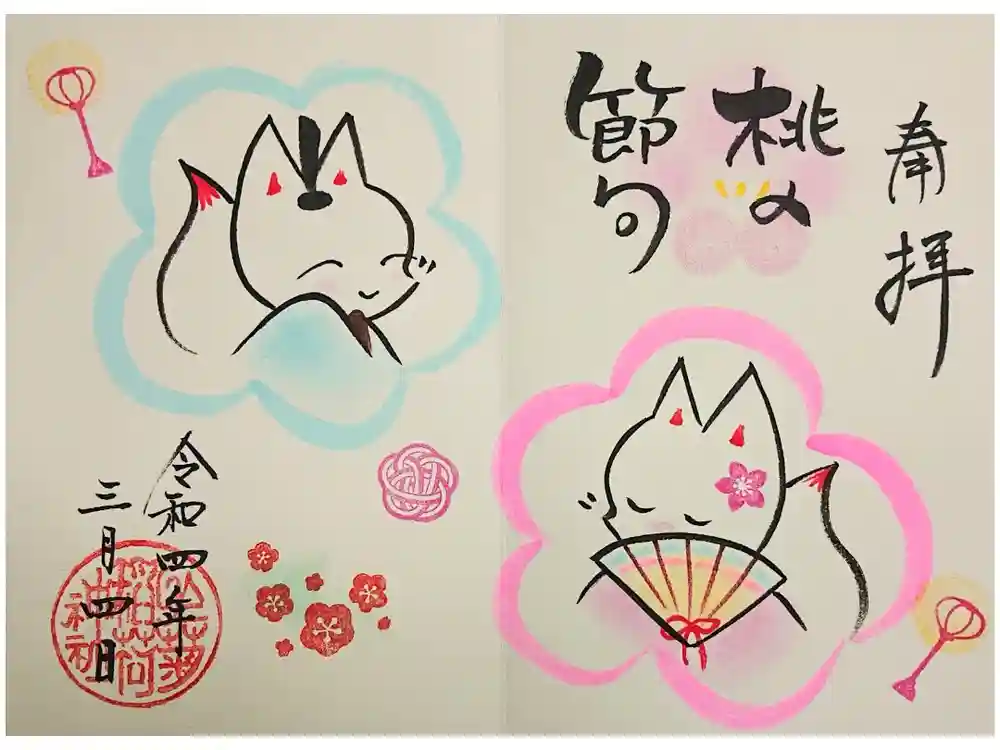 奉拝
桃の
節句
令和四年
三月四日